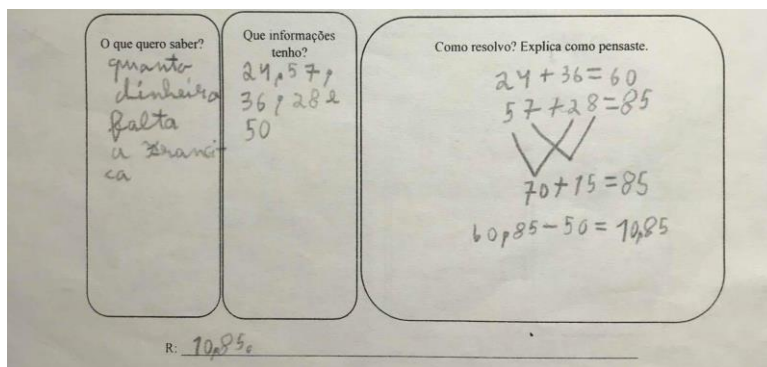 O que quero saber?
quanto
dinheiro
falta
a Franci-
ca
Que informações
tenho?
24,57,
36,28 e
50
Como resolvo? Explica como pensaste.
24+36=60
57+28=85
70+15=85
60,85-50=10,85
R: 10,85.